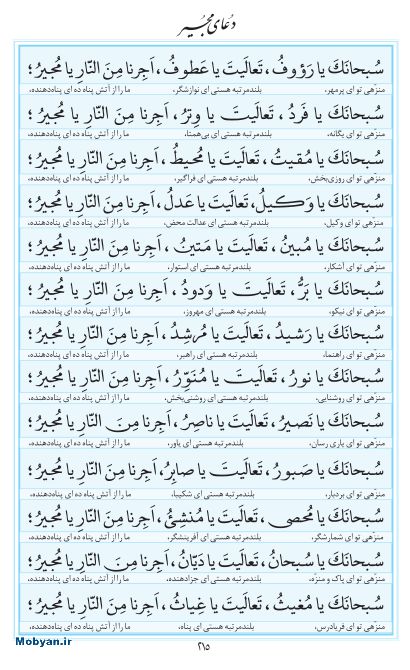 دُعای مُجیر
سُبحانَکَ یا رَؤوفُ، تَعالَیتَ یا عَطوفُ، اَجِرنا مِنَ النّارِ یا مُجیرُ؛
منزّهی تو ای پرمهر، بلندمرتبه هستی ای نوازشگر، ما را از آتش پناه ده ای پناه‌دهنده،
سُبحانَکَ یا فَردُ، تَعالَیتَ یا وِترُ، اَجِرنا مِنَ النّارِ یا مُجیرُ؛
منزّهی تو ای یگانه، بلندمرتبه هستی ای بی‌همتا، ما را از آتش پناه ده ای پناه‌دهنده،
سُبحانَکَ یا مُقیتُ، تَعالَیتَ یا مُحیطُ، اَجِرنا مِنَ النّارِ یا مُجیرُ؛
منزّهی تو ای روزی‌بخش، بلندمرتبه هستی ای فراگیر، ما را از آتش پناه ده ای پناه‌دهنده،
سُبحانَکَ یا وَکیلُ، تَعالَیتَ یا عَدلُ، اَجِرنا مِنَ النّارِ یا مُجیرُ؛
منزّهی تو ای وکیل، بلندمرتبه هستی ای عدالت محض، ما را از آتش پناه ده ای پناه‌دهنده،
سُبحانَکَ یا مُبینُ، تَعالَیتَ یا مَتینُ، اَجِرنا مِنَ النّارِ یا مُجیرُ؛
منزّهی تو ای آشکار، بلندمرتبه هستی ای استوار، ما را از آتش پناه ده ای پناه‌دهنده،
سُبحانَکَ یا بَرُّ، تَعالَیتَ یا وَدودُ، اَجِرنا مِنَ النّارِ یا مُجیرُ؛
منزّهی تو ای نیکو، بلندمرتبه هستی ای مهروز، ما را از آتش پناه ده ای پناه‌دهنده،
سُبحانَکَ یا رَشیدُ، تَعالَیتَ یا مُرشِدُ، اَجِرنا مِنَ النّارِ یا مُجیرُ؛
منزّهی تو ای راهنما، بلندمرتبه هستی ای راهبر، ما را از آتش پناه ده ای پناه‌دهنده،
سُبحانَکَ یا نورُ، تَعالَیتَ یا مُنَوِّرُ، اَجِرنا مِنَ النّارِ یا مُجیرُ؛
منزّهی تو ای روشنایی، بلندمرتبه هستی ای روشنی‌بخش، ما را از آتش پناه ده ای پناه‌دهنده،
سُبحانَکَ یا نَصیرُ، تَعالَیتَ یا ناصِرُ، اَجِرنا مِنَ النّارِ یا مُجیرُ؛
منزّهی تو ای یاری رسان، بلندمرتبه هستی ای یاور، ما را از آتش پناه ده ای پناه‌دهنده،
سُبحانَکَ یا صَبورُ، تَعالَیتَ یا صابِرُ، اَجِرنا مِنَ النّارِ یا مُجیرُ؛
منزّهی تو ای بردبار، بلندمرتبه هستی ای شکیبا، ما را از آتش پناه ده ای پناه‌دهنده،
سُبحانَکَ یا مُحصی، تَعالَیتَ یا مُنشِئُ، اَجِرنا مِنَ النّارِ یا مُجیرُ؛
منزّهی تو ای شمارشگر، بلندمرتبه هستی ای آفرینشگر، ما را از آتش پناه ده ای پناه‌دهنده،
سُبحانَکَ یا سُبحانُ، تَعالَیتَ یا دَیّانُ، اَجِرنا مِنَ النّارِ یا مُجیرُ؛
منزّهی تو ای پاک و منزّه، بلندمرتبه هستی ای جزادهنده، ما را از آتش پناه ده ای پناه‌دهنده،
سُبحانَکَ یا مُغیثُ، تَعالَیتَ یا غِیاثُ، اَجِرنا مِنَ النّارِ یا مُجیرُ؛
منزّهی تو ای فریادرس، بلندمرتبه هستی ای پناه، ما را از آتش پناه ده ای پناه‌دهنده،
۲۱۵
Mobyan.ir